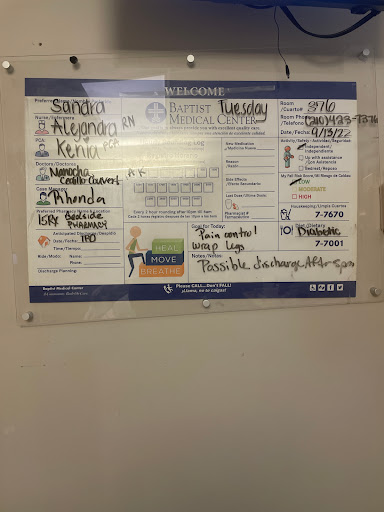 WELCOME
Sandra
BAPTIST
MEDICAL CENTER
Tuesday
Room
/Cuarto#
376
Nurse/Enfermera
Alejandra RN
Room Phone
/Telefono
(210)423-7376
Date/Fecha:
9/13/22
PCA:
Kenia PCA
New Medication
Activity/Safety - Actividad/Seguridad
Independent/
Independiente
Up with assistance
/Con Asistencia
Bedrest/Reposo
Doctors/Doctores
Nanocha
Reason
Side Effects
/Efecto Secundario
My Fall Risk Score/Mi Riesgo de Caídas:
LOW
MODERATE
HIGH
Case Manager
Rhonda
Preferred Pharmacy Name/Location
Bedside
PHARMACY
Every 2 hour rounding after 10pm til 6am
Pharmacist #
Housekeeping/Limpia Cuartos
7-7670
Anticipated Discharge/Despido
Date/Fecha:
TBD
Time/Tiempo:
Ride/Modo:
Name:
Phone:
Discharge Planning:
HEAL
MOVE
BREATHE
Goal for Today:
Pain control
wrap legs
Diet/Dieta:
Diabetic
7-7001
Notes/Notas:
Possible discharge After 5pm
Baptist Medical Center
Please CALL...Don't FALL!
¡Llame, no se caigas!